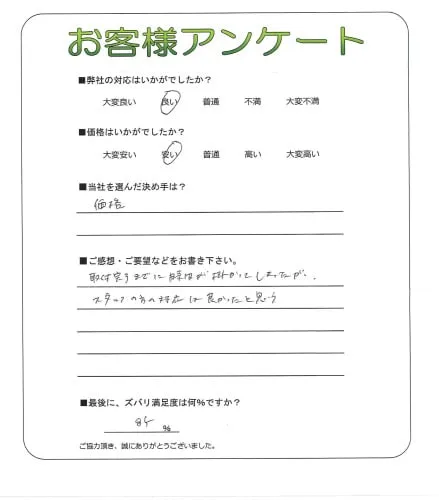 お客様アンケート
■弊社の対応はいかがでしたか？
大変良い 良い 普通 不満 大変不満
■価格はいかがでしたか？
大変安い 安い 普通 高い 大変高い
■当社を選んだ決め手は？
価格
■ご感想・ご要望などをお書き下さい。
取付完了までに時間が掛かってしまったが、
スタッフの方の対応は良かったと思う
■最後に、ズバリ満足度は何%ですか？
%
ご協力頂き、誠にありがとうございました。